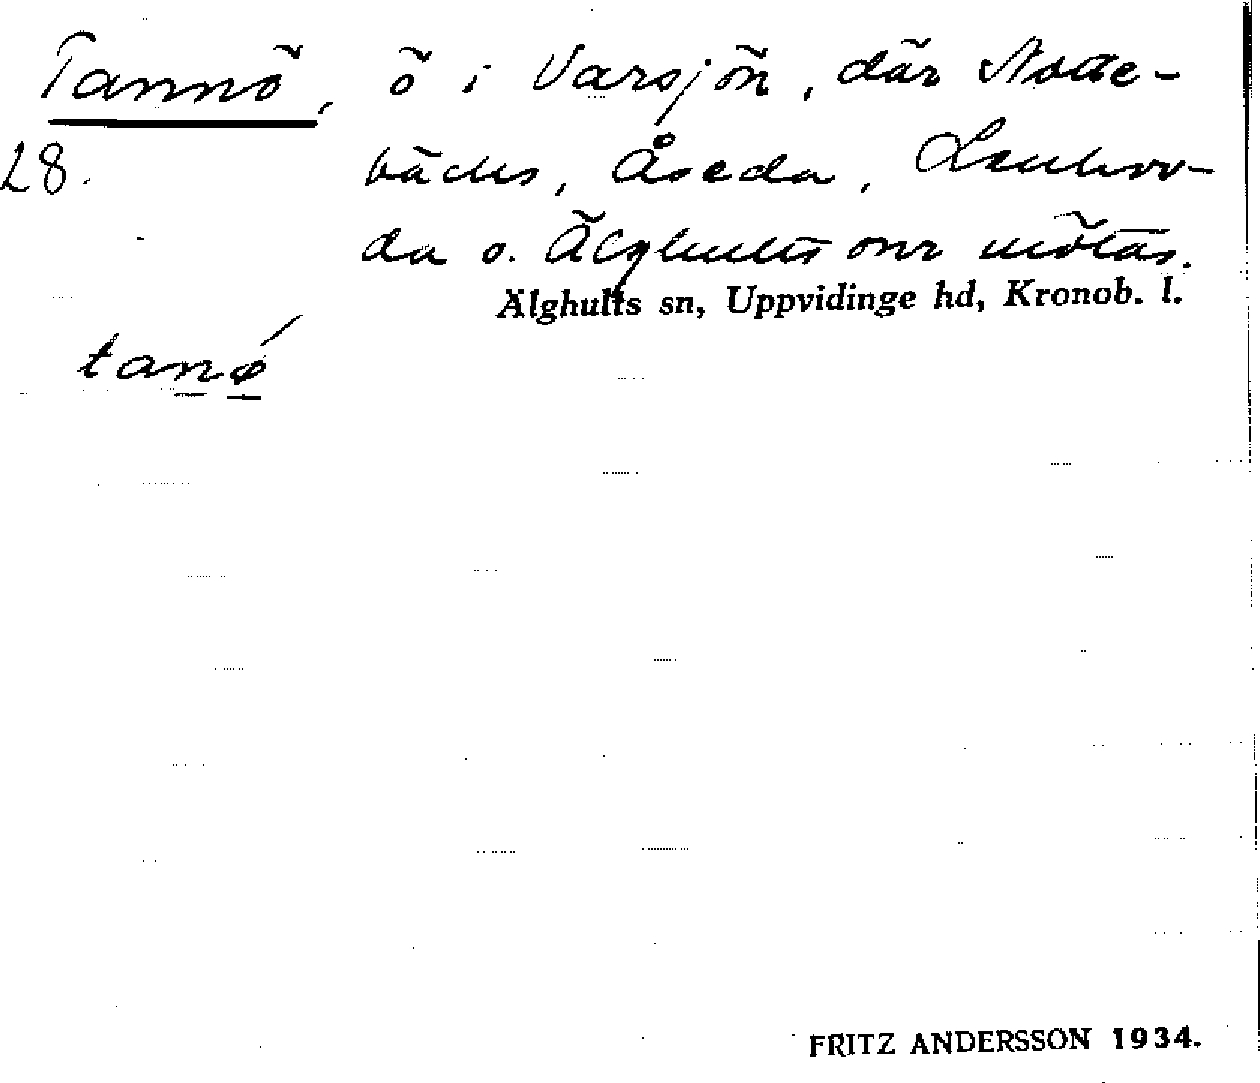 Tannö, ö i Varsjön, där Notte-
28. bäcks, Åseda, Lenhov-
da o. Älghults snr mötas.
Älghults sn, Uppvidinge hd, Kronob. l.
tanø
FRITZ ANDERSSON 1934.